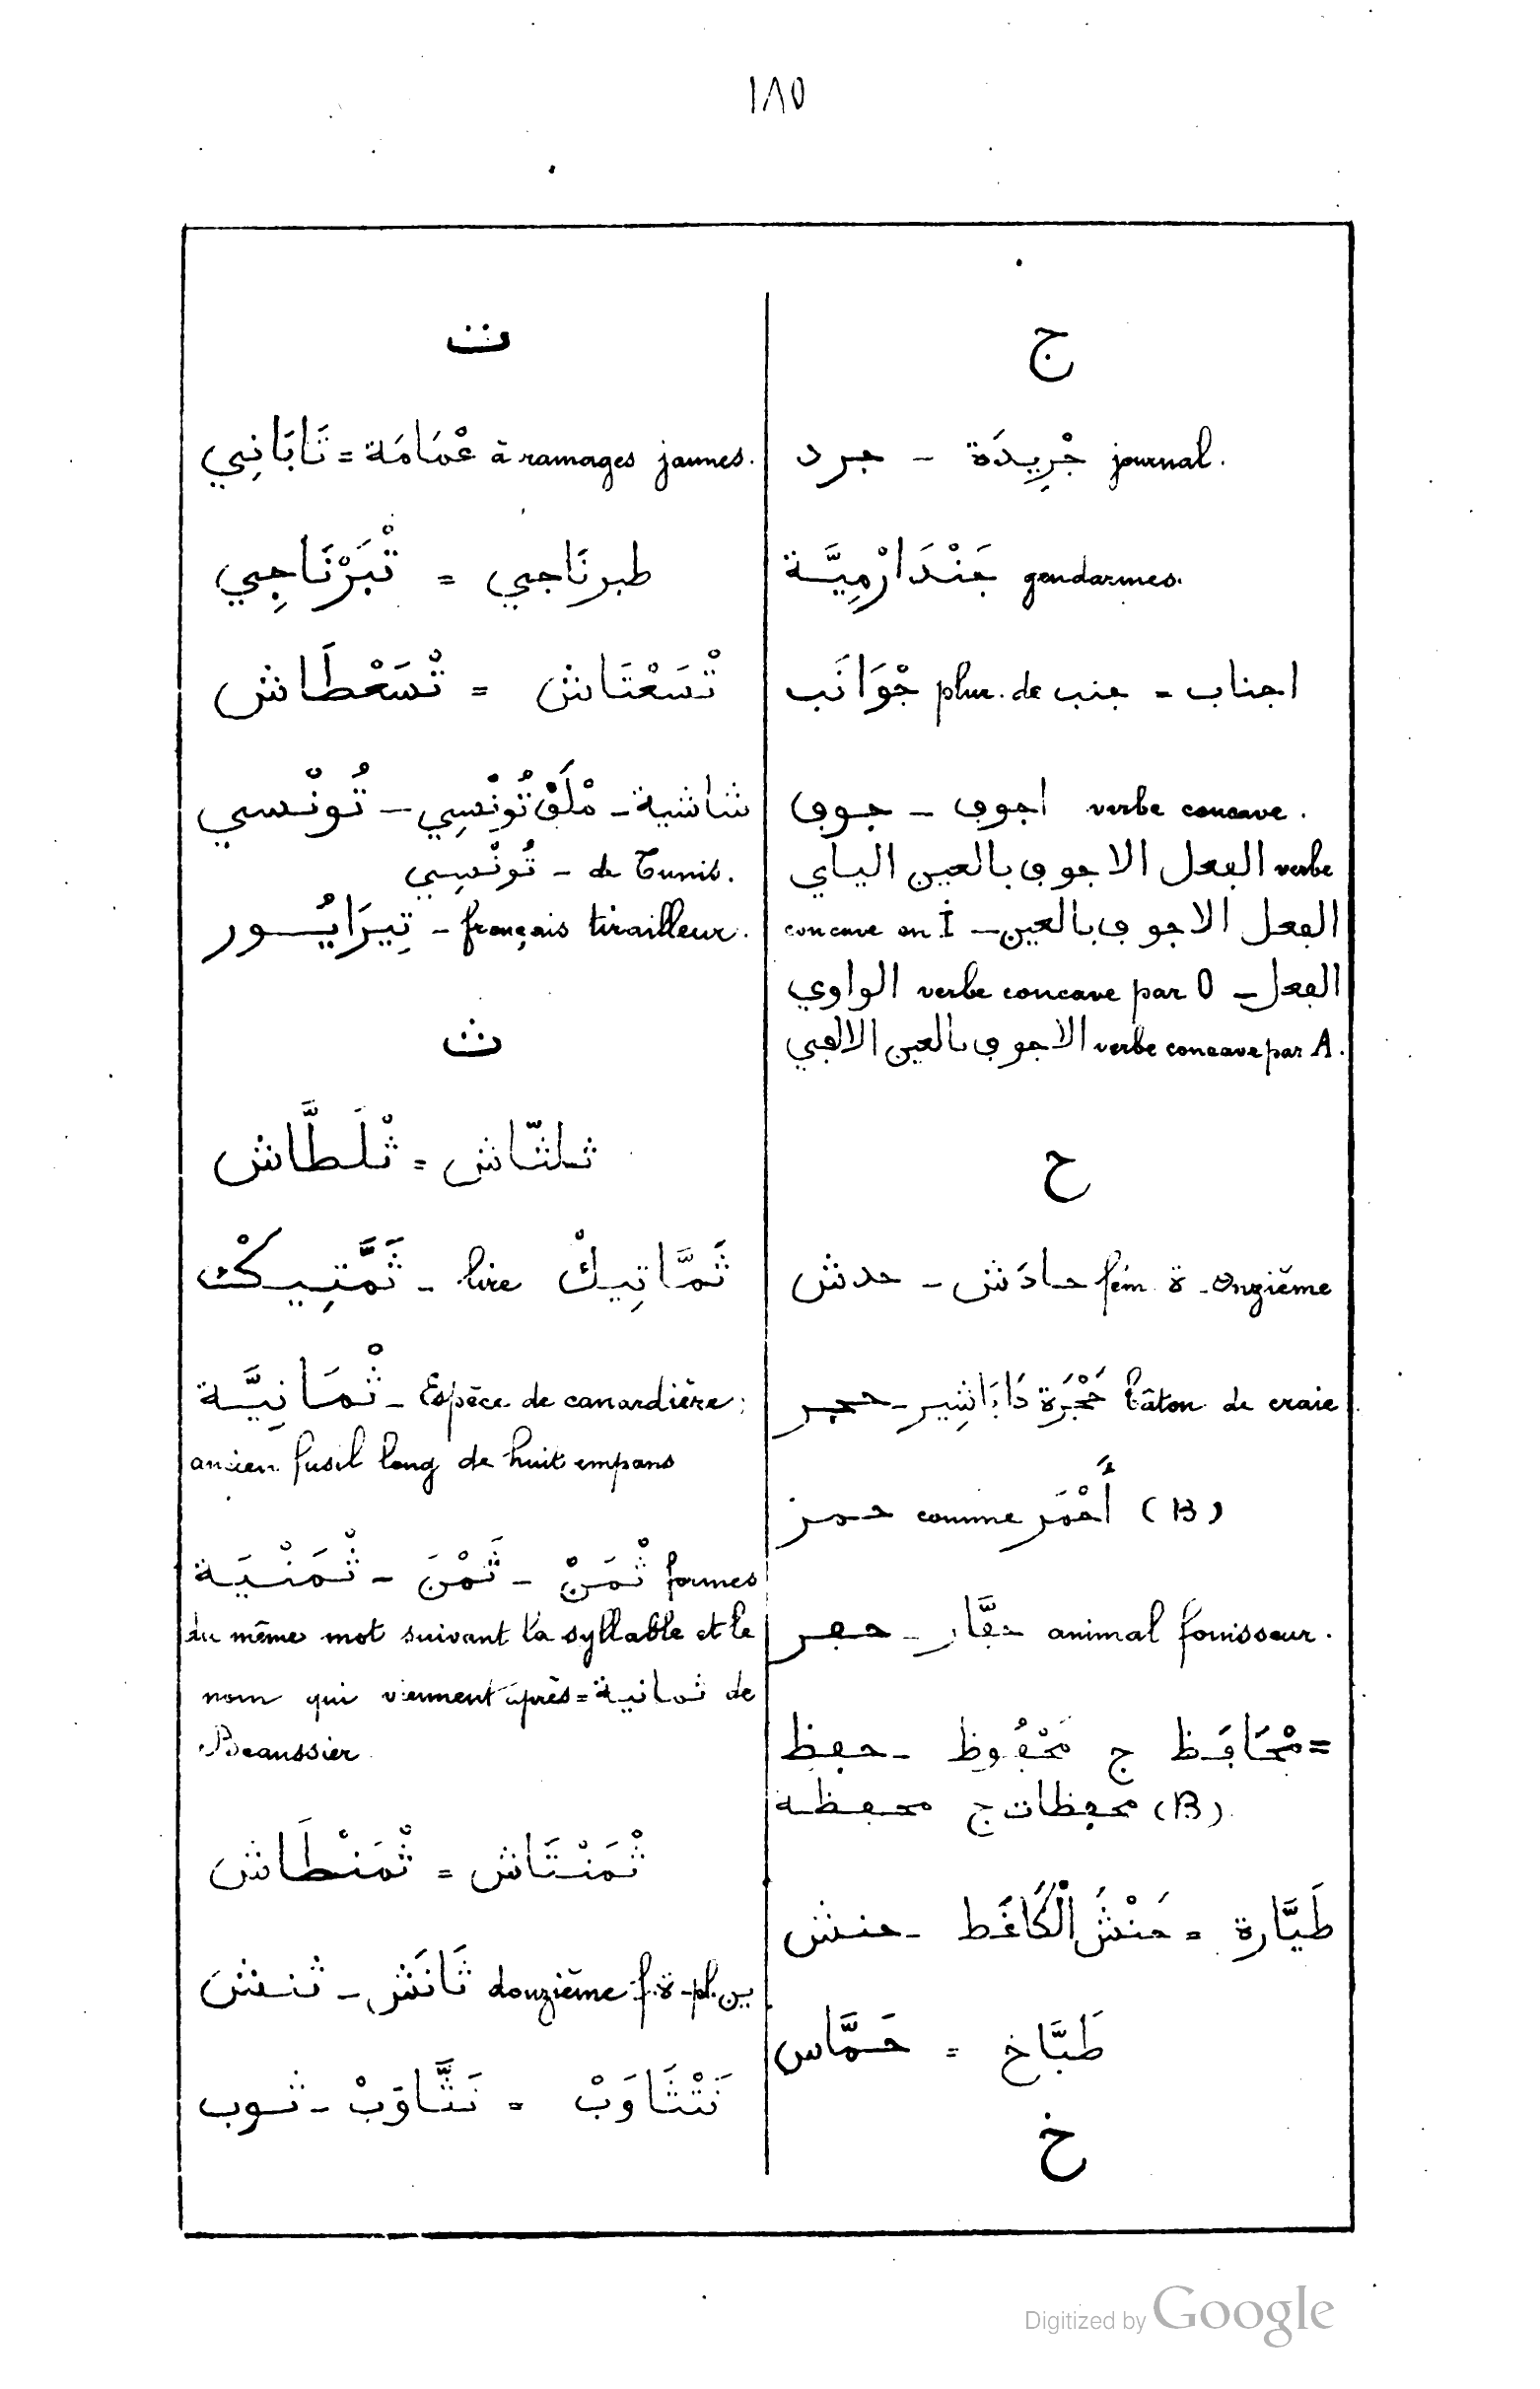 ١٨٥
ت
تَابَانِي = عْمَامَة à ramages jaunes.
تْبَرْنَاجِي = طبرنَاجي
تْسَعْطَاش = تْسَعْتَاش
تُونْسي – مْلَڢْ تُونْسِي – شاشية
تُونْسِي – de Tunis.
تِيرَايُسور – français tirailleur.
ث
ثْلَطَّاش = ثلثّاش
ثَمَّتِيكْت – lire ثَمَّاتِيكْ
ثْمَانِيَّة – Espèce de canardière;
ancien fusil long de huit empans
ثْمَنْيَة – ثَمْنَ – ثْمَنْ formes
du même mot suivant la syllable et le
nom qui viennent après = ثمانية de
Beaussier
ثْمَنْطَاش = ثْمَنْتَاش
ثنش – ثَانَش douzième f. ة – pl. ين
ثوب – نَثَّاوَبْ = نَتْثَاوَبْ
ج
جرد – جْرِيدَة journal.
جَنْدَارْمِيَّة gendarmes.
جْوَانَب plur. de جنب = اجناب
جوڢ – اجوڢ verbe concave.
الڢعل الاجوڢ بالعين الياي verbe
concave en I – الڢعل الاجوڢ بالعين
الواوي verbe concave par O – الڢعل
الاجوڢ بالعين الالڢي verbe concave par A.
ح
حدش – حادَش fém. ة – onzième
حجر – حَجْرَة دَابَاشِير bâton de craie
حمز comme أَحْمَر (B)
حڢر – حڢَّار animal fouisseur.
حڢظ – مَحْڢُوظ ج مْحَاڢَظ =
محڢظة ج محڢظات (B).
حنش – حَنْشَ الْكَاغَط = طَيَّارة
حَمَّاس = طَبَّاخ
خ
Digitized by Google